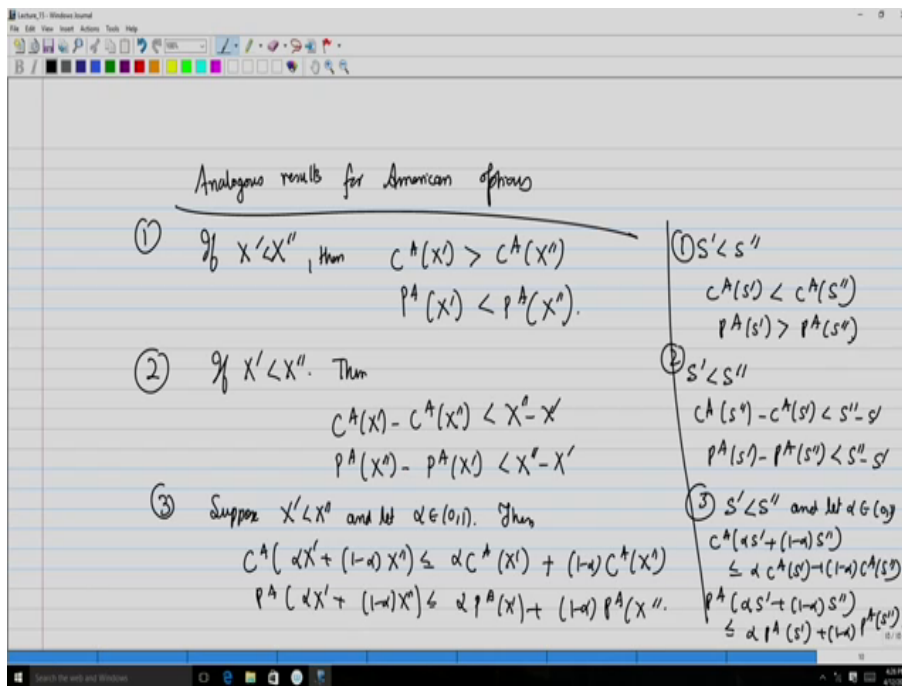 Lecture_15 - Windows Journal
File Edit View Insert Actions Tools Help
B I
Analogous results for American options
① If X'<X'', then C^A(X') > C^A(X'')
P^A(X') < P^A(X'').
② If X'<X''. Then
C^A(X') - C^A(X'') < X''-X'
P^A(X'') - P^A(X') < X''-X'
③ Suppose X'<X'' and let α∈(0,1). Then
C^A(αX' + (1-α)X'') ≤ αC^A(X') + (1-α)C^A(X'')
P^A(αX' + (1-α)X'') ≤ αP^A(X') + (1-α)P^A(X''.
① S'<S''
C^A(S') < C^A(S'')
P^A(S') > P^A(S'')
② S'<S''
C^A(S'') - C^A(S') < S''-S'
P^A(S') - P^A(S'') < S''-S'
③ S'<S'' and let α∈(0,1)
C^A(αS' + (1-α)S'')
≤ αC^A(S') + (1-α)C^A(S'')
P^A(αS' + (1-α)S'')
≤ αP^A(S') + (1-α)P^A(S'')
10
Search the web and Windows